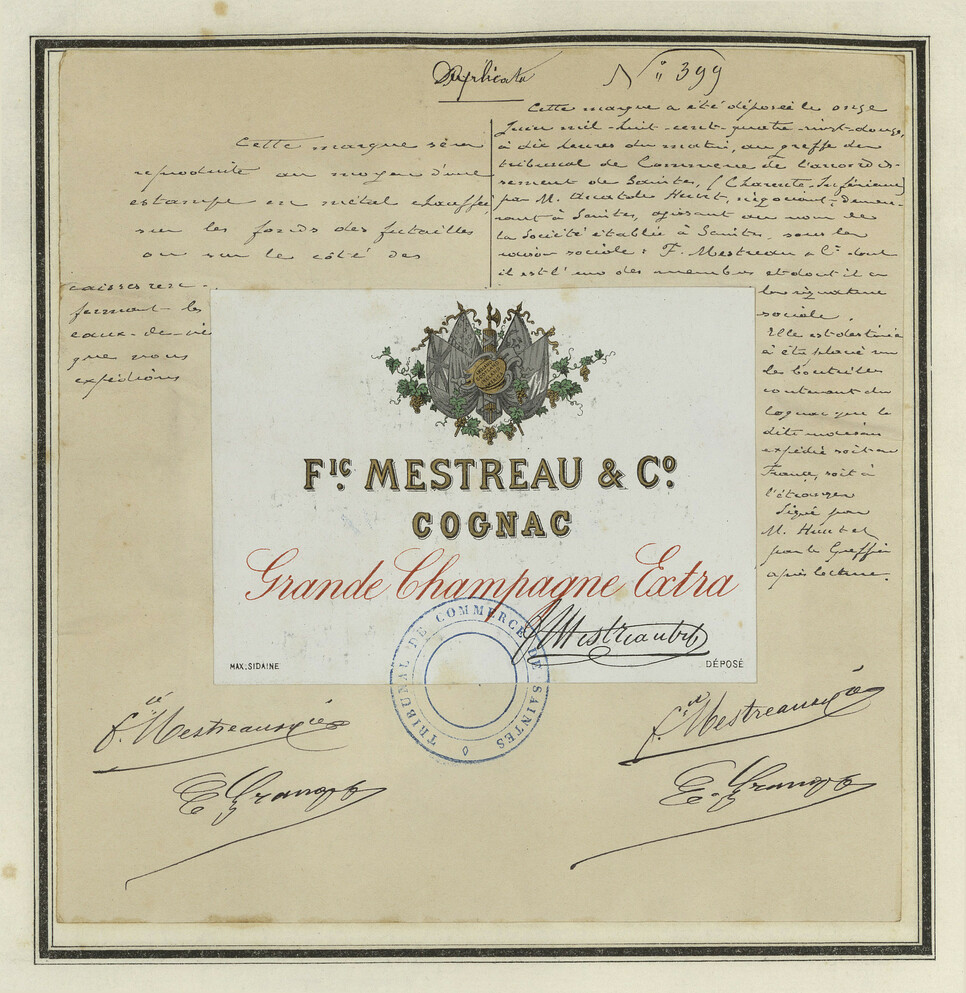 Duplicata
N° 399
Cette marque sera
reproduite au moyen d'une
estampe en métal chauffé,
sur les fonds des futailles
ou sur le côté des
caisses ren-
fermant les
eaux-de-vie
que nous
expédions
Cette marque a été déposée le onze
Juin mil-huit-cent-quatre-vingt-douze,
à dix heures du matin, au greffe du
tribunal de Commerce de l'arrondis-
sement de Saintes, (Charente-Inférieure)
par M. Anatole Huvet, négociant demeu-
rant à Saintes, agissant au nom de
la Société établie à Saintes, sous la
raison sociale: F. Mestreau & Cie dont
il est l'un des membres et dont il a
la signature
sociale.
Elle est destinée
à être placée sur
les bouteilles
contenant du
Cognac que la
dite maison
expédie soit en
France, soit à
l'étranger
Signé par
M. Huvet et
par le Greffier
après lecture.
Fic. MESTREAU & Co.
COGNAC
Grande Champagne Extra
F. Mestreau & Cie
MAX. SIDAINE
DÉPOSÉ
TRIBUNAL DE COMMERCE DE SAINTES
fic. Mestreau & cie
fic. Mestreau & cie